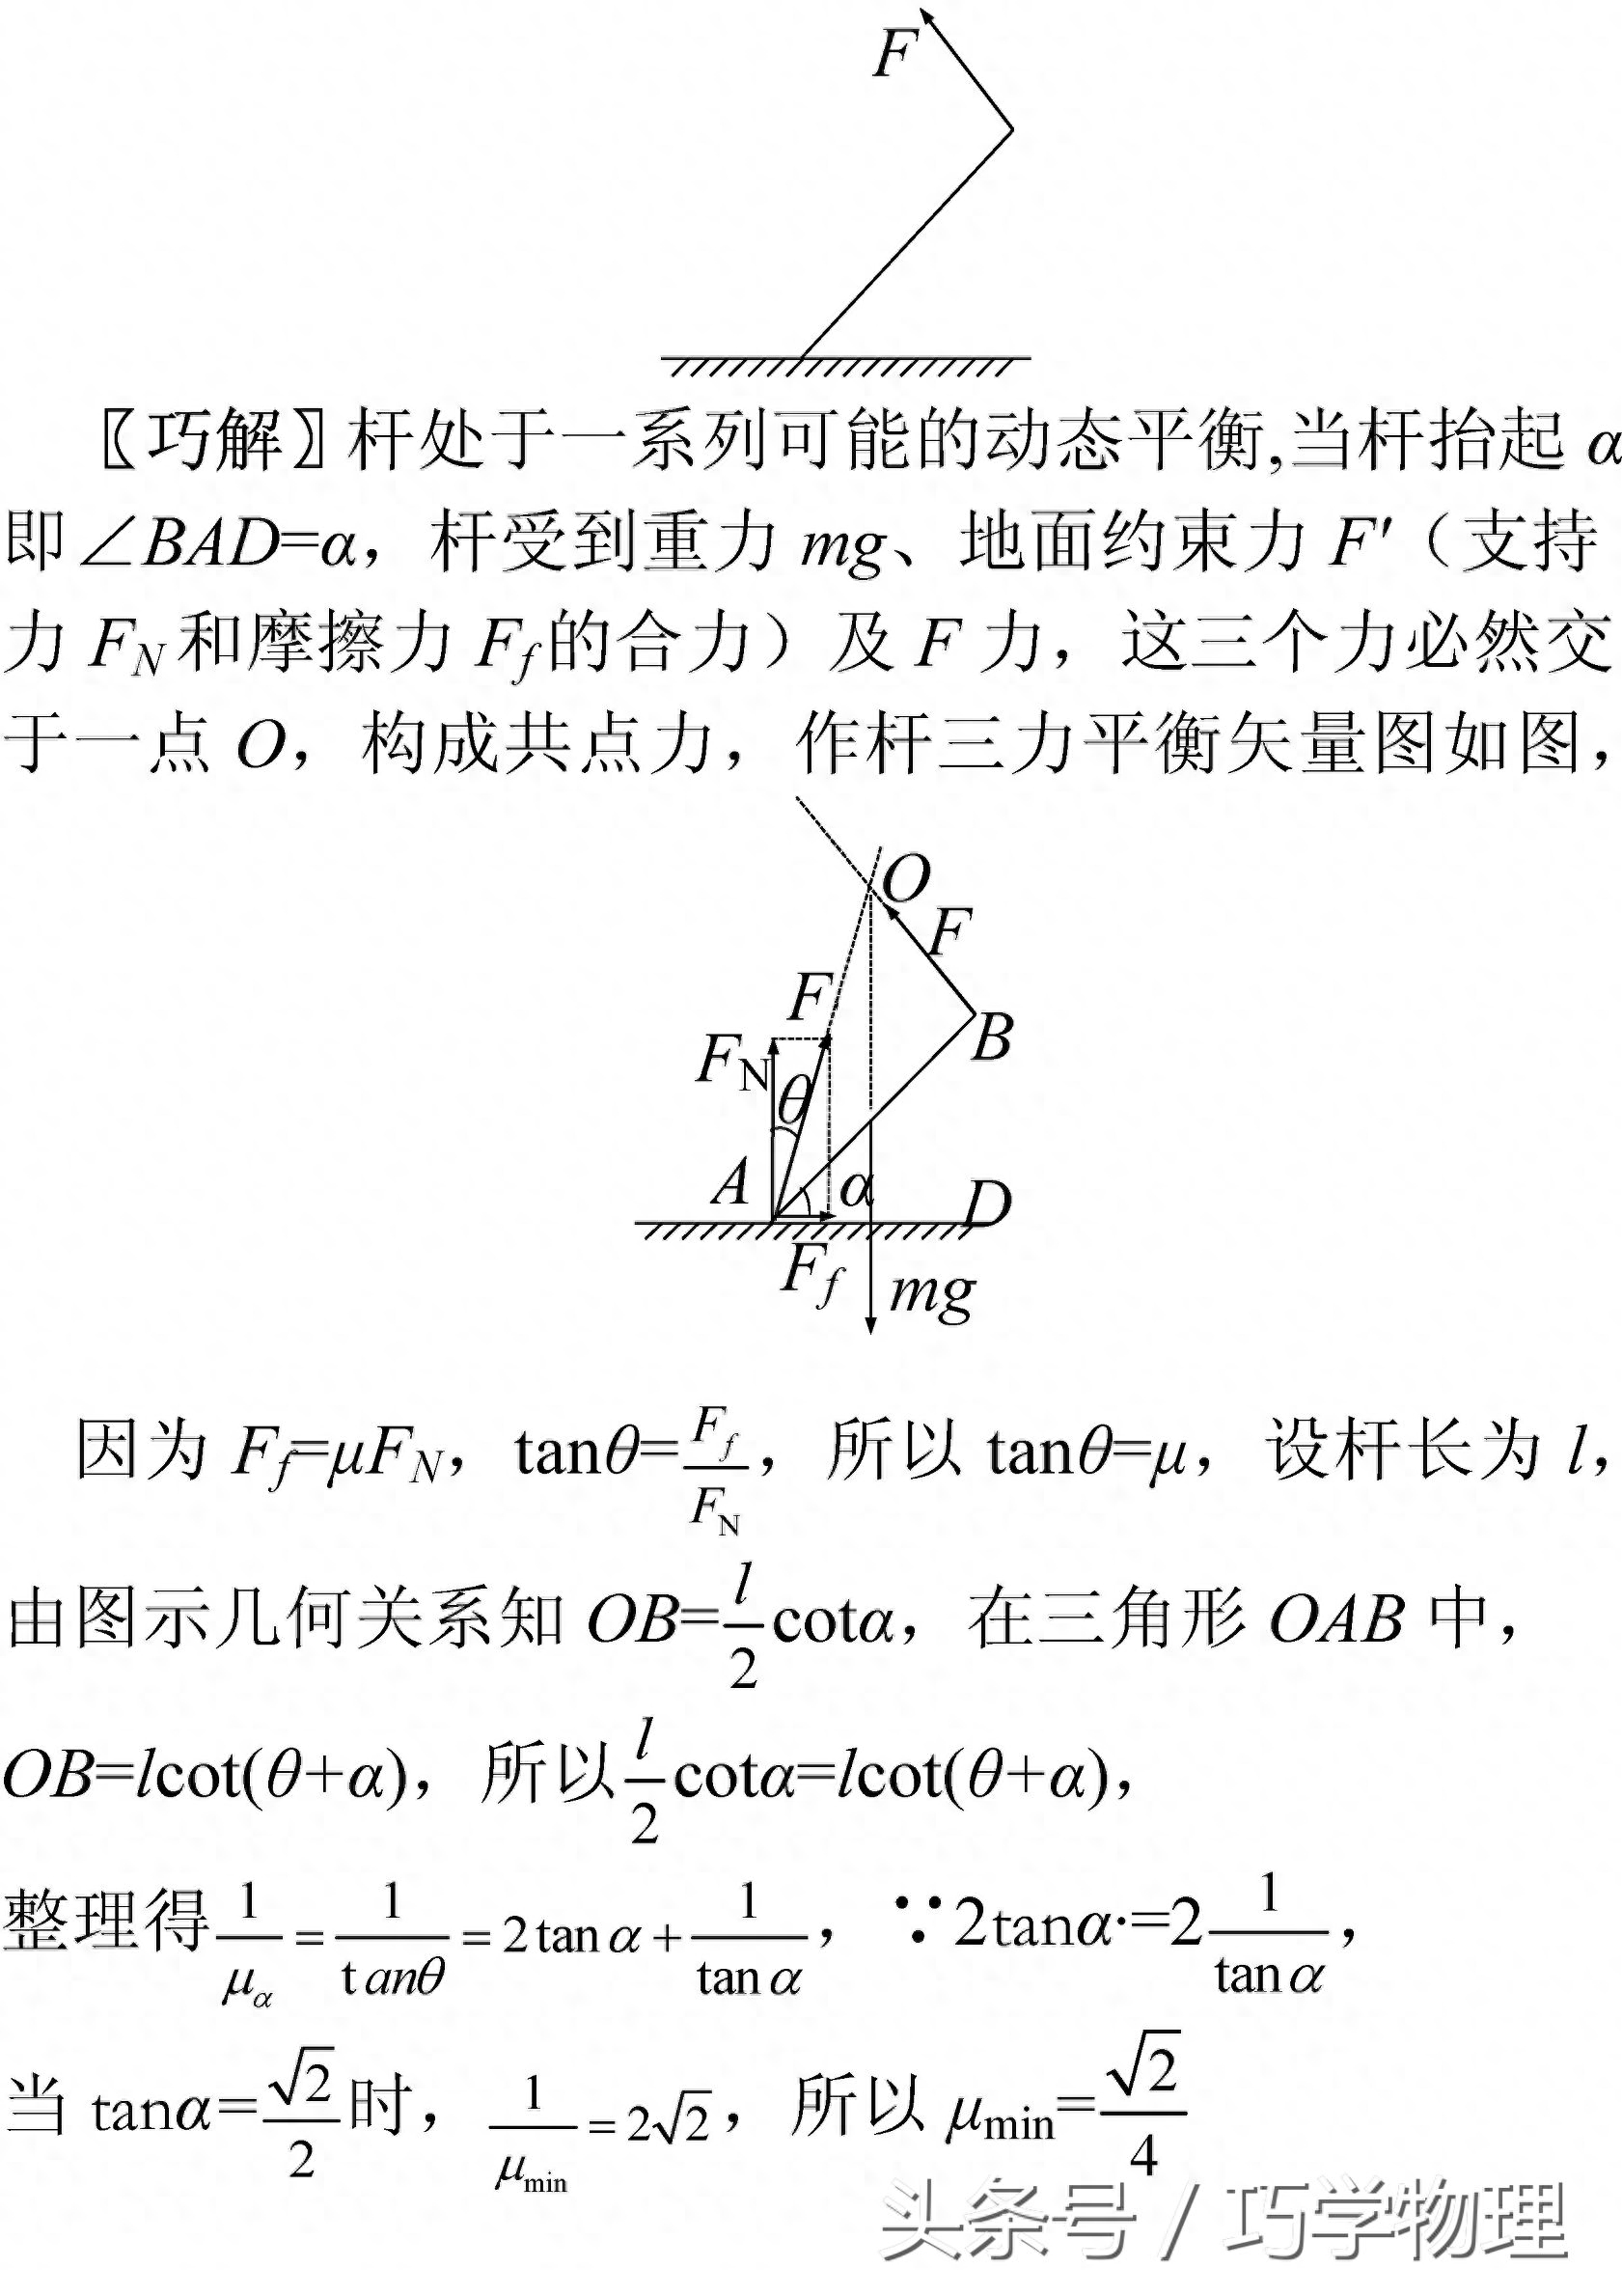 F
〖巧解〗杆处于一系列可能的动态平衡,当杆抬起 α
即∠BAD=α，杆受到重力 mg、地面约束力 F′（支持
力 F_N 和摩擦力 F_f 的合力）及 F 力，这三个力必然交
于一点 O，构成共点力，作杆三力平衡矢量图如图，
O
F
F
B
F_N
θ
A
α
D
F_f
mg
因为 F_f=μF_N，tanθ=F_f/F_N，所以 tanθ=μ，设杆长为 l，
由图示几何关系知 OB=l/2 cotα，在三角形 OAB 中，
OB=lcot(θ+α)，所以 l/2 cotα=lcot(θ+α)，
整理得 1/μ_α = 1/tanθ = 2tanα + 1/tanα，∵2tanα·=2 1/tanα，
当 tanα=√2/2 时，1/μ_min = 2√2，所以 μ_min=√2/4
头条号 / 巧学物理